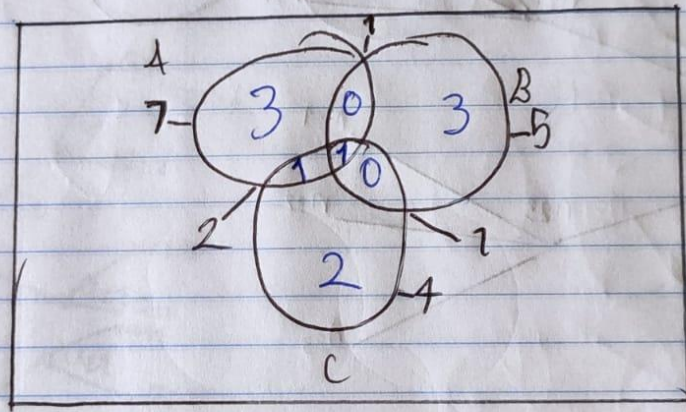 1
A
B
7 3 0 3 5
1 1 0
2 1
2 4
C